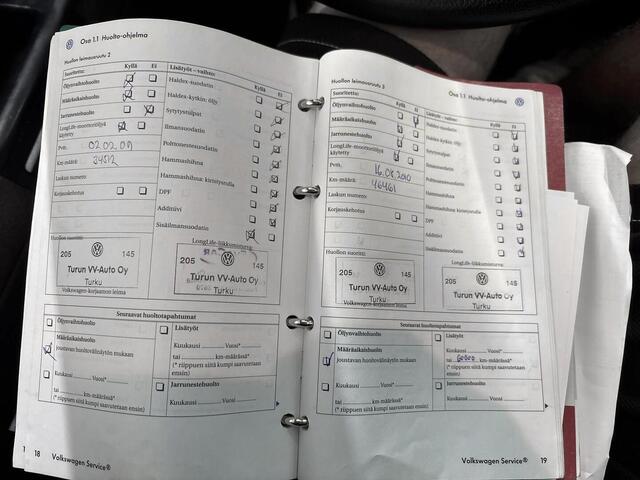 Osa 1.1 Huolto-ohjelma
Huollon leimausruutu 2
Suoritettu: Kyllä Ei
Öljynvaihtohuolto
Määräaikaishuolto
Jarrunestehuolto
LongLife-moottoriöljyä
käytetty
Pvm. 02.02.09
Km-määrä: 34512
Laskun numero:
Korjauskehotus
Huollon suoritti:
205 145
Turun VV-Auto Oy
Turku
Volkswagen-korjaamon leima
Lisätyöt - vaihto: Kyllä Ei
Haldex-suodatin
Haldex-kytkin: öljy
Sytytystulpat
Ilmansuodatin
Polttonestesuodatin
Hammashihna
Hammashihna: kiristysrulla
DPF
Additiivi
Sisäilmansuodatin
LongLife-liikkumisturva:
205 145
Turun VV-Auto Oy
Turku
Seuraavat huoltotapahtumat
Öljynvaihtohuolto
Määräaikaishuolto
joustavan huoltovälinäytön mukaan
Kuukausi Vuosi*
tai km-määrässä*
(* riippuen siitä kumpi saavutetaan
ensin)
Lisätyöt
Kuukausi Vuosi*
tai km-määrässä*
(* riippuen siitä kumpi saavutetaan ensin)
Jarrunestehuolto
Kuukausi Vuosi
18 Volkswagen Service®
Osa 1.1 Huolto-ohjelma
Huollon leimausruutu 3
Suoritettu: Kyllä Ei
Öljynvaihtohuolto
Määräaikaishuolto
Jarrunestehuolto
LongLife-moottoriöljyä
käytetty
Pvm. 16.08.2010
Km-määrä: 46461
Laskun numero:
Korjauskehotus
Huollon suoritti:
205 145
Turun VV-Auto Oy
Turku
Volkswagen-korjaamon leima
Lisätyöt - vaihto: Kyllä Ei
Haldex-suodatin
Haldex-kytkin: öljy
Sytytystulpat
Ilmansuodatin
Polttonestesuodatin
Hammashihna
Hammashihna: kiristysrulla
DPF
Additiivi
Sisäilmansuodatin
LongLife-liikkumisturva:
205 145
Turun VV-Auto Oy
Turku
Seuraavat huoltotapahtumat
Öljynvaihtohuolto
Määräaikaishuolto
joustavan huoltovälinäytön mukaan
Kuukausi Vuosi*
tai km-määrässä*
(* riippuen siitä kumpi saavutetaan
ensin)
Lisätyöt
Kuukausi Vuosi*
tai 60000 km-määrässä*
(* riippuen siitä kumpi saavutetaan ensin)
Jarrunestehuolto
Kuukausi Vuosi
Volkswagen Service® 19